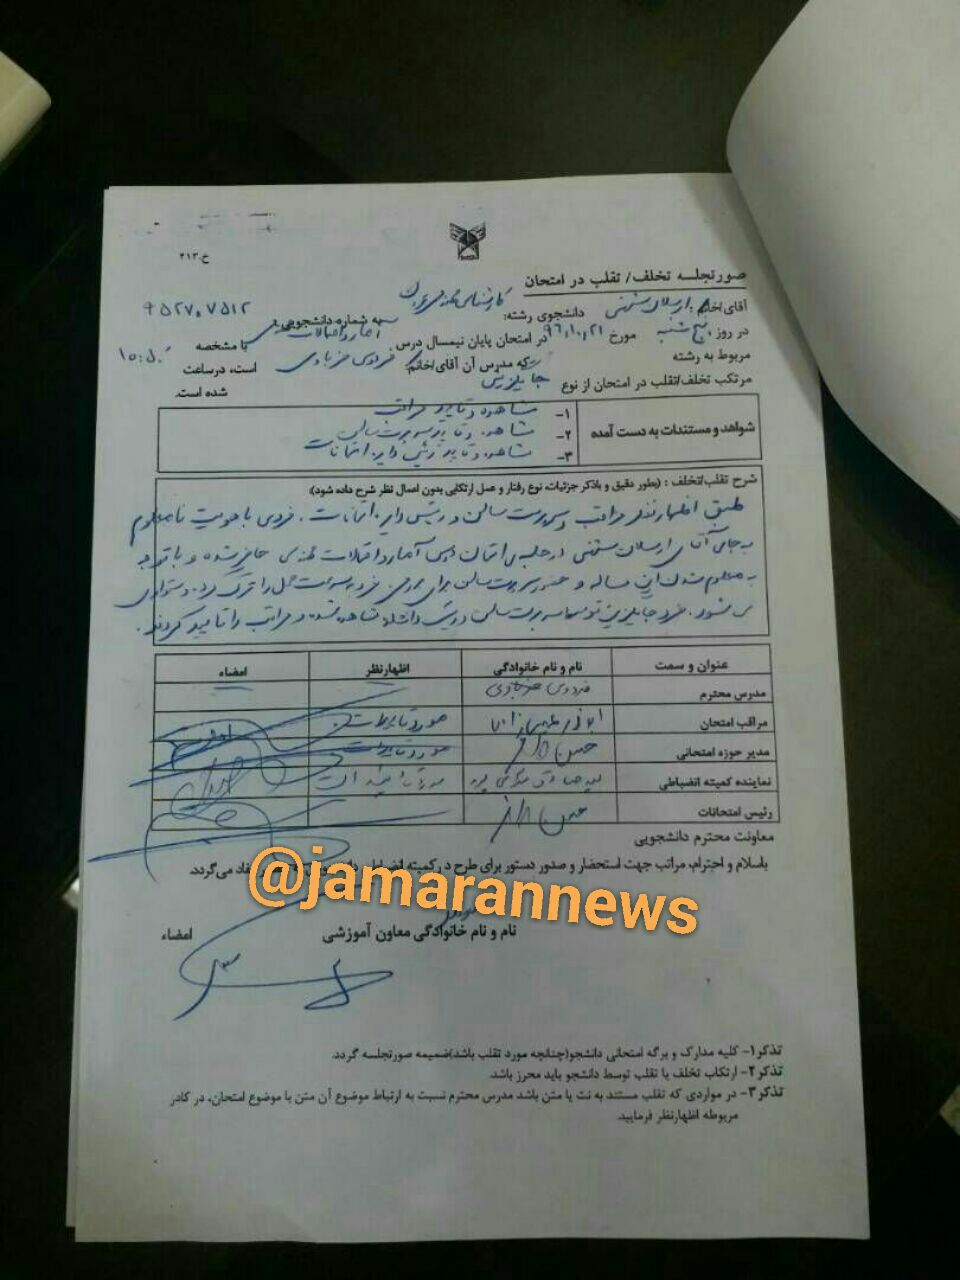 خ.۲۱۳
صورتجلسه تخلف/ تقلب در امتحان
آقای/خانم: ارسلان دانشجوی رشته: کارشناسی مهندسی به شماره دانشجویی: ۹۵۲۷۰۷۵۱۲
در روز پنج شنبه مورخ ۹۶،۱۰،۲۱ در امتحان پایان نیمسال درس آمار و احتمالات مهندسی با مشخصه
مربوط به رشته که مدرس آن آقای/خانم: فردوس است، درساعت ۱۰:۵۰
مرتکب تخلف/تقلب در امتحان از نوع جایگزینی شده است.
شواهد و مستندات به دست آمده
۱- مشاهده و تایید مراقب
۲- مشاهده و تایید سرپرست سالن
۳- مشاهده و تایید رئیس دایره امتحانات
شرح تقلب/تخلف : (بطور دقیق و باذکر جزئیات، نوع رفتار و عمل ارتکابی بدون اعمال نظر شرح داده شود)
طبق اظهار نظر مراقب و سرپرست سالن و رئیس دایره امتحانات، فردی با هویت نامعلوم
به جای آقای ارسلان در جلسه امتحان درس آمار و احتمالات مهندسی حاضر شده و با توجه
به معلوم شدن این مساله و حضور سرپرست سالن برای بررسی فرد به سرعت محل را ترک کرد.
می شود. فرد جایگزین توسط سرپرست سالن دانشگاه مشاهده شده و مراتب را تایید کردند.
عنوان و سمت نام و نام خانوادگی اظهارنظر امضاء
مدرس محترم فردوس
مراقب امتحان ابوذر مورد تایید است
مدیر حوزه امتحانی حسن مورد تایید است
نماینده کمیته انضباطی مورد تایید است
رئیس امتحانات حسن
معاونت محترم دانشجویی
باسلام و احترام، مراتب جهت استحضار و صدور دستور برای طرح در کمیته انضباطی می‌گردد.
@jamarannews
نام و نام خانوادگی معاون آموزشی امضاء
تذکر۱- کلیه مدارک و برگه امتحانی دانشجو(چنانچه مورد تقلب باشد)ضمیمه صورتجلسه گردد.
تذکر۲- ارتکاب تخلف یا تقلب توسط دانشجو باید محرز باشد.
تذکر۳- در مواردی که تقلب مستند به نت یا متن باشد مدرس محترم نسبت به ارتباط موضوع آن متن با موضوع امتحان، در کادر
مربوطه اظهارنظر فرمایید.